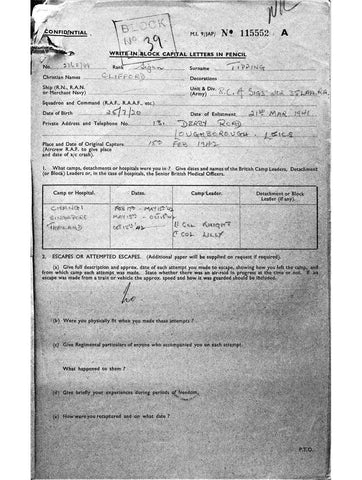 CONFIDENTIAL
BLOCK
NO 39
M.I. 9/JAP/ Nº 115552 A
WRITE IN BLOCK CAPITAL LETTERS IN PENCIL
No. Rank Sigmn Surname TIPPING
Christian Names CLIFFORD Decorations
Ship (R.N., R.A.N. or Merchant Navy)
Unit & Div. (Army) R.C. of SIGS
Squadron and Command (R.A.F., R.A.A.F., etc.)
Date of Birth 25/7/20 Date of Enlistment 21st MAR 1941
Private Address and Telephone No. 131 DERBY ROAD
LOUGHBOROUGH, LEICS
Place and Date of Original Capture. 15th FEB 1942
(Aircrew R.A.F. to give place and date of a/c crash).
1. What camps, detachments or hospitals were you in? Give dates and names of the British Camp Leaders, Detachment (or Block) Leaders or, in the case of hospitals, the Senior British Medical Officers.
Camp or Hospital. Dates. Camp Leader. Detachment or Block Leader (if any).
CHANGI FEB 15th - MAY 15th 42
SINGAPORE MAY 15th - 42
THAILAND 42 Lt COL KNIGHT
Lt COL LILLY
2. ESCAPES OR ATTEMPTED ESCAPES. (Additional paper will be supplied on request if required).
(a) Give full description and approx. date of each attempt you made to escape, showing how you left the camp, and from which camp each attempt was made. State whether there was an air-raid in progress at the time or not. If an escape was made from a train or vehicle the approx. speed and how it was guarded should be included.
No
(b) Were you physically fit when you made these attempts?
(c) Give Regimental particulars of anyone who accompanied you on each attempt.
What happened to them?
(d) Give briefly your experiences during periods of freedom.
(e) How were you recaptured and on what date?
P.T.O.